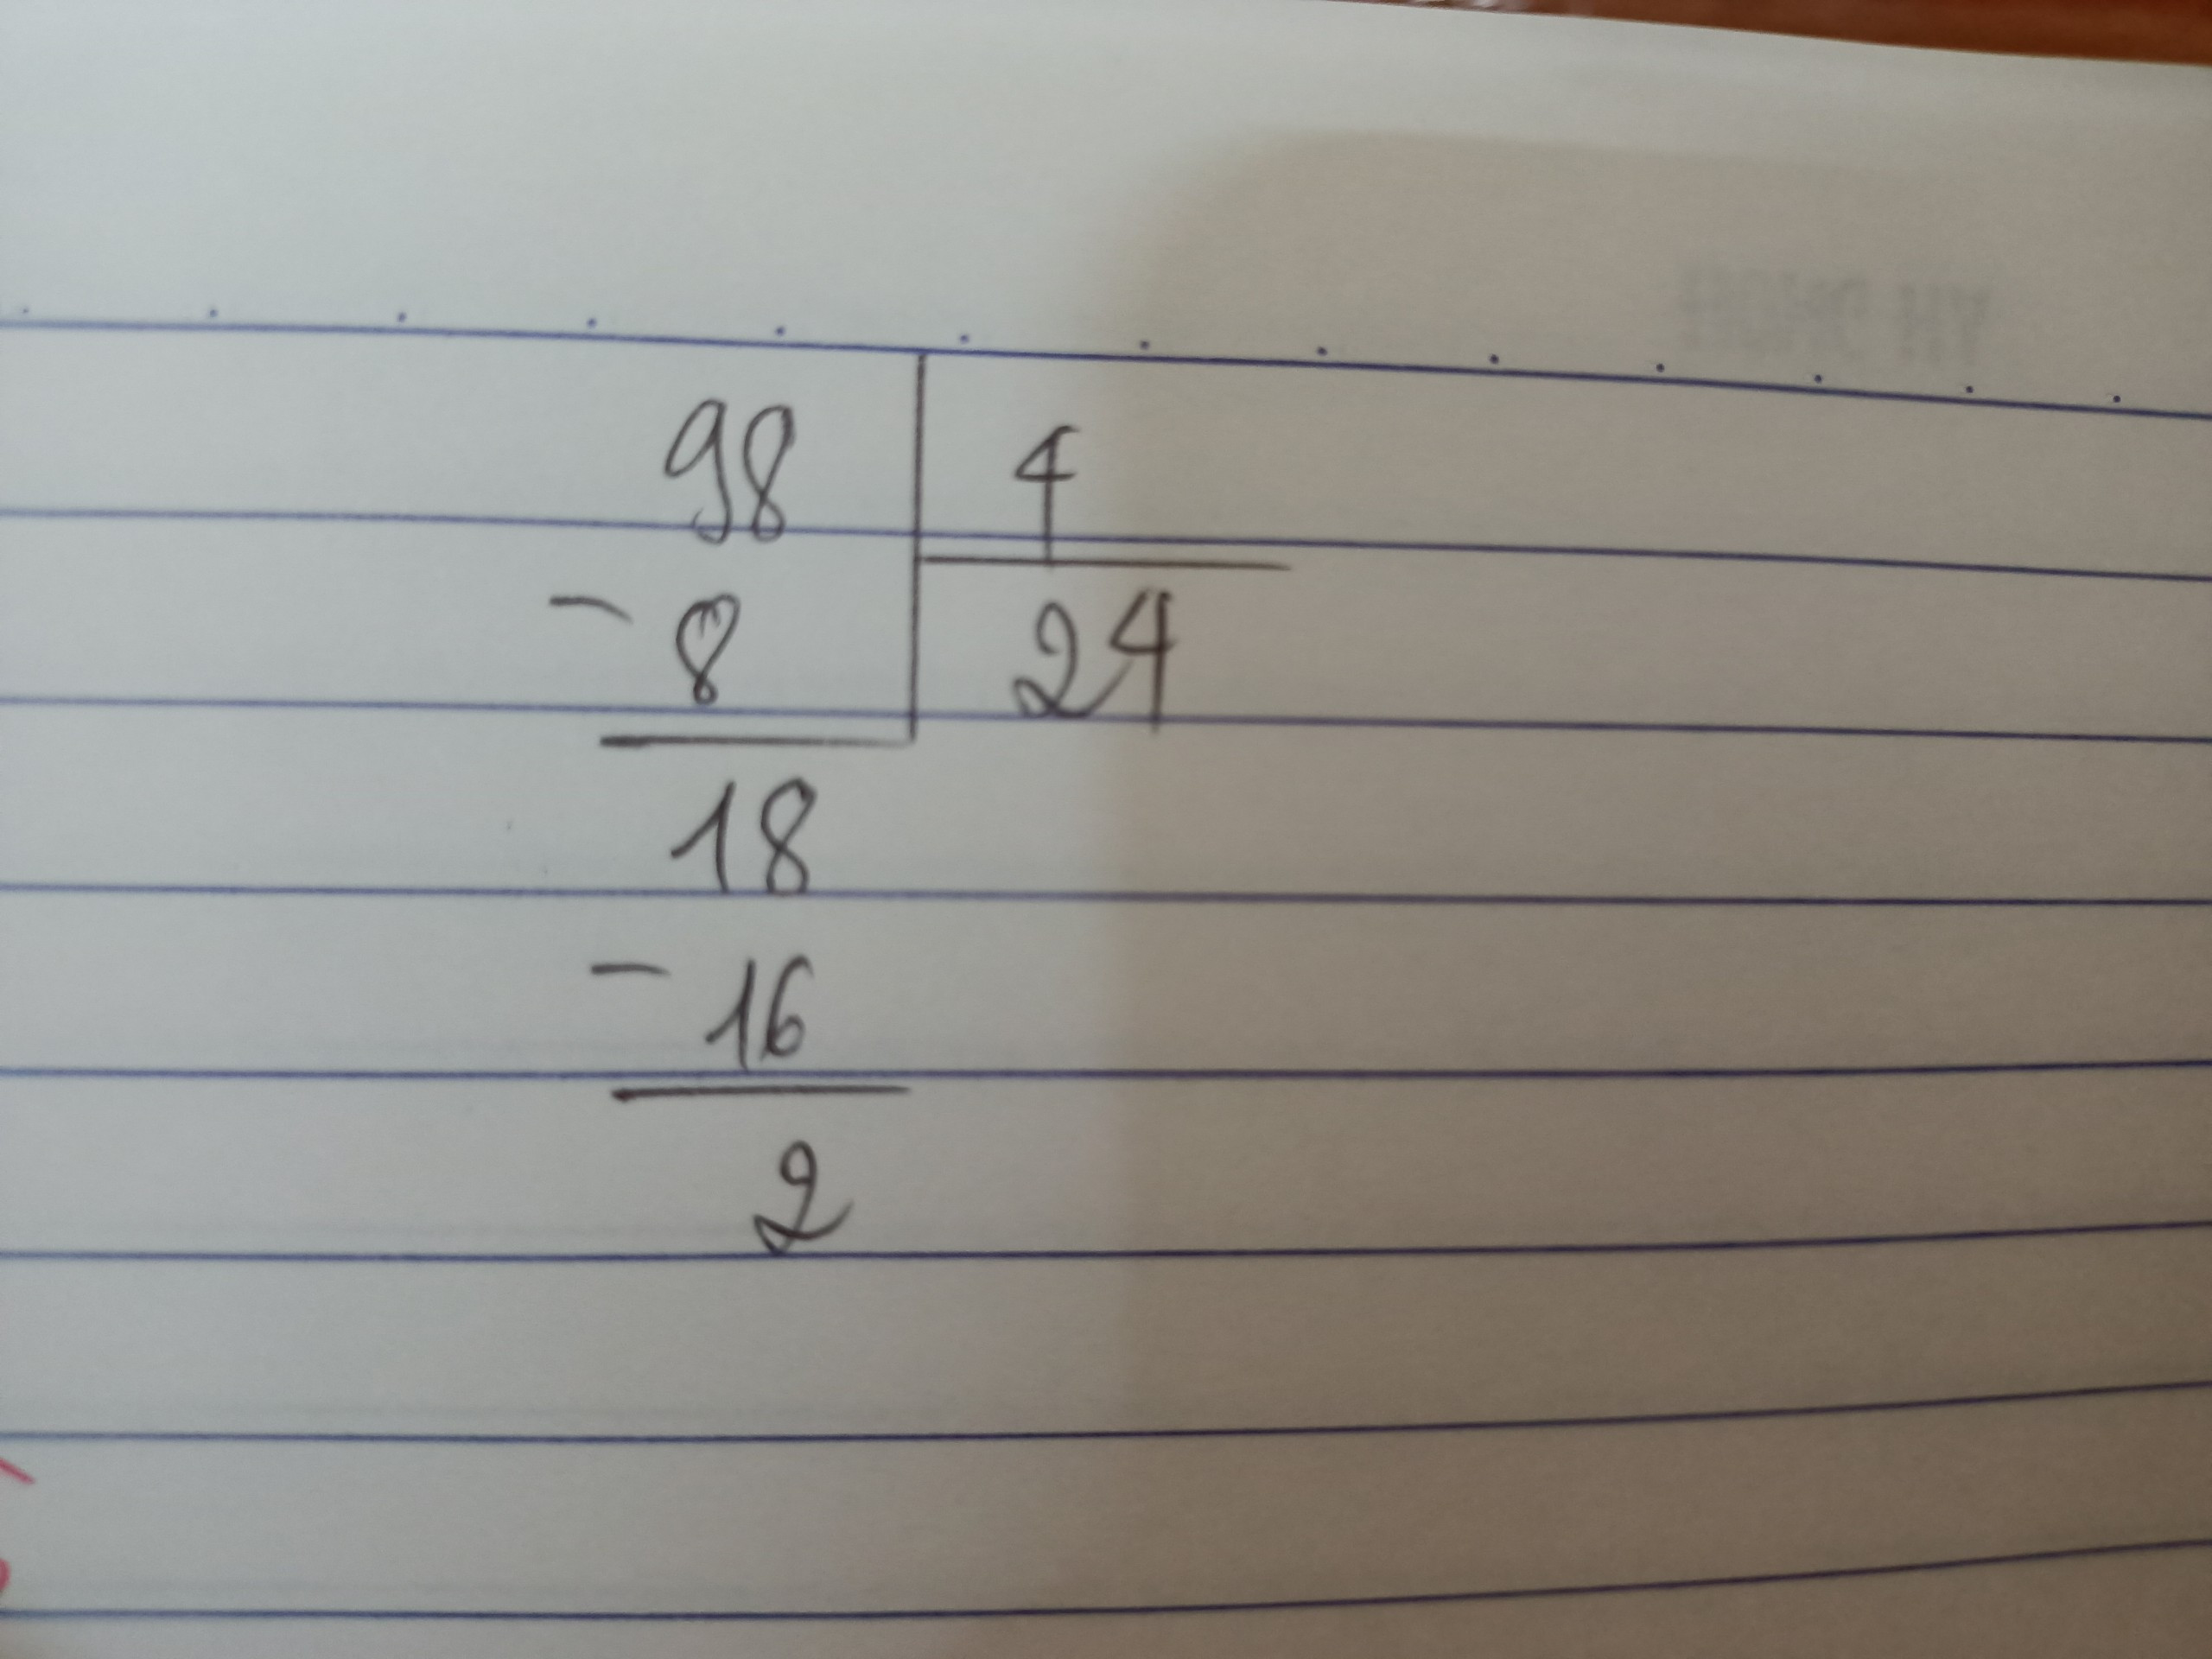 98 4
- 8 24
18
- 16
2